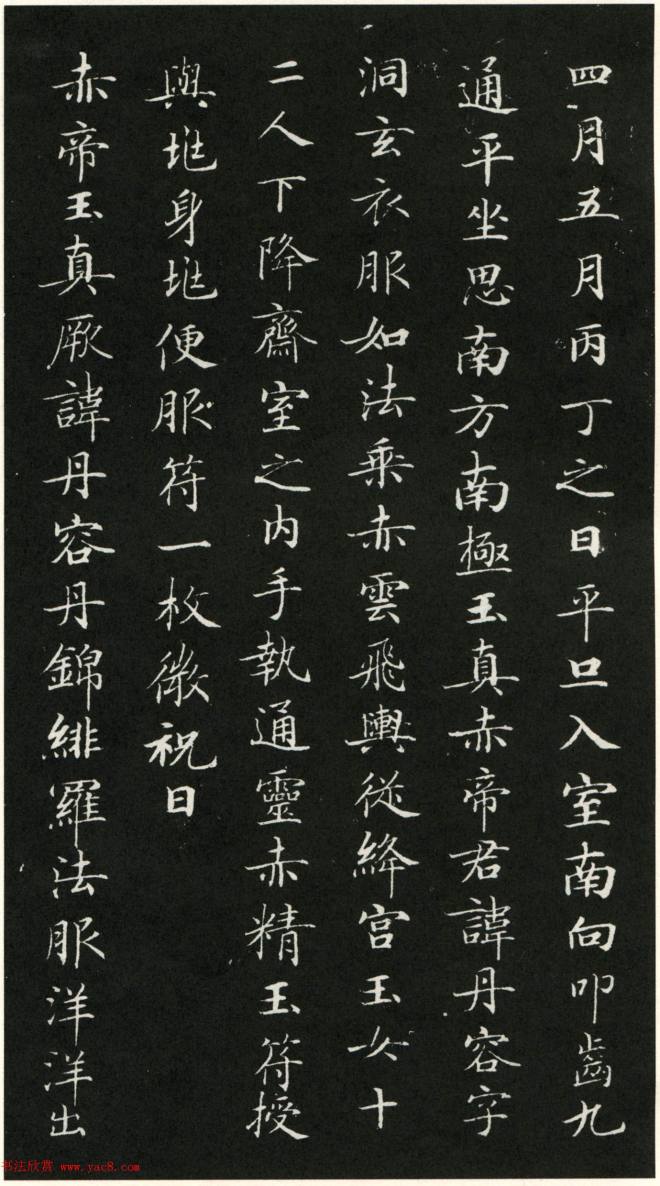 四月五月丙丁之日平旦入室南向叩齒九
通平坐思南方南極玉真赤帝君諱丹容字
洞玄衣服如法乘赤雲飛輿從絳宮玉女十
二人下降齋室之内手執通靈赤精玉符授
與兆身兆便服符一枚微祝曰
赤帝玉真厥諱丹容丹錦緋羅法服洋洋出
书法欣赏 www.yac8.com